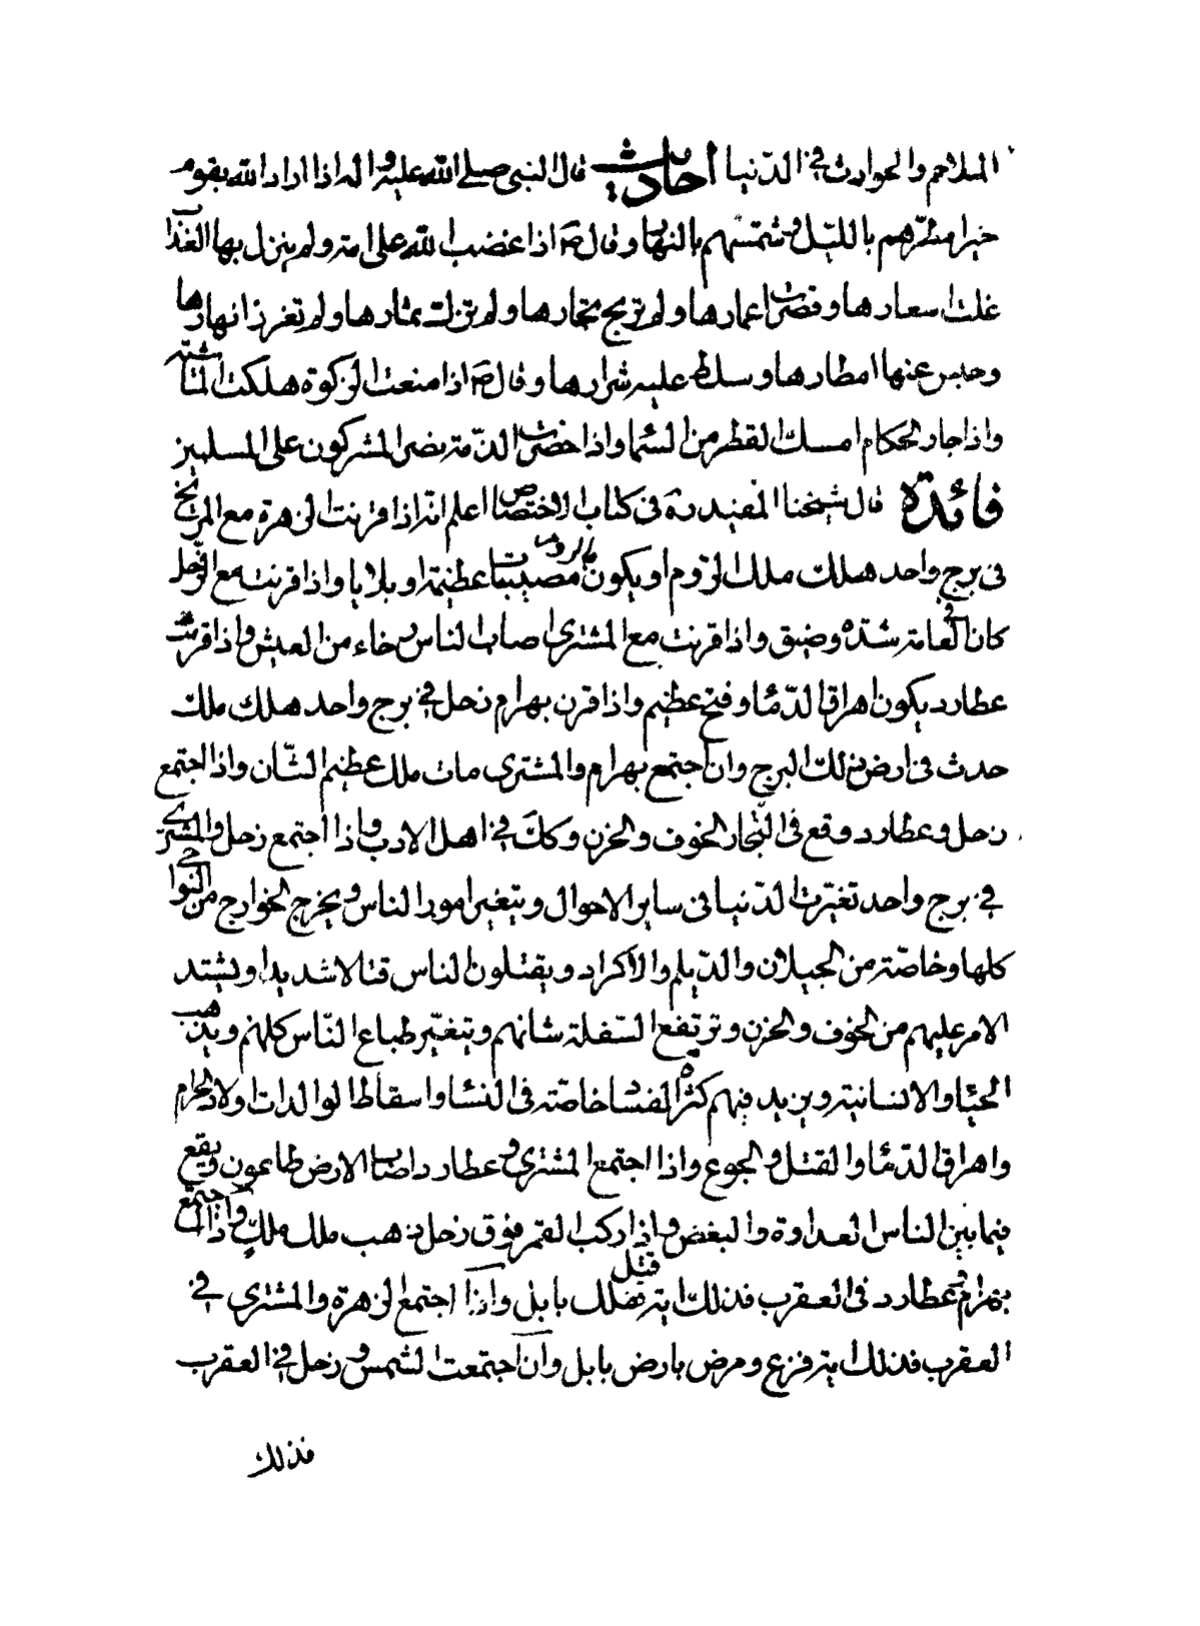 الملاحم والحوادث في الدّنيا أحاديث قال النبي صلے الله عليه واله اذا اراد الله بقوم
خيرا مطرهم بالليل وشمّسهم بالنهار وقال ص اذا غضب الله على امة ولم ينزل بها العذا
غلت اسعارها وقصرت اعمارها ولم تربح تجارها ولم تزك ثمارها ولم تغزر انهارها
وحبس عنها امطارها وسلط عليها شرارها وقال ص اذا منعت الزكوة هلكت الماشية
واذا جار الحكام امسك القطر من السّماء واذا خفرت الذّمة نصر المشركون على المسلمين
فائدة قال شيخنا المفيد ره في كتاب الاختصاص اعلم انّه اذا قرنت الزهرة مع المريخ
في برج واحد هلك ملك الروم او يكون بالروم مصيبات عظيمة او بلايا واذا قرنت مع الزحل
كان في العامة شدّة وضيق واذا قرنت مع المشتري اصاب الناس رخاء من العيش واذا قرنت
عطارد يكون اهراق الدّماء وفتح عظيم واذا قرن بهرام زحل في برج واحد هلك ملك
حدث في ارض ذلك البرج وان اجتمع بهرام والمشتري مات ملك عظيم الشّان واذا اجتمع
زحل وعطارد وقع في التّجار الخوف والحزن وكك في اهل الادب واذا اجتمع زحل والمشتري
في برج واحد تغيّرت الدّنيا في ساير الاحوال ويتغير امور الناس ويخرج الخوارج من النواحي
كلها وخاصّة من الجيلان والدّيلم والاكراد ويقتلون الناس قتالا شديدا ويشتد
الامر عليهم من الخوف والحزن وترتفع السّفلة شانهم ويتغيّر طباع النّاس كلهم ويذهب
الحياء والانسانية ويزيد فيهم كثرة الفساد خاصّة في النساء واسقاط الوالدات اولاد الحرام
واهراق الدّماء والقتل والجوع واذا اجتمع المشتري وعطارد اصاب الارض طاعون ويقع
فيما بين الناس العداوة والبغض واذا ركب القمر فوق زحل يذهب ملك ملكٍ واذا اجتمع
بهرام وعطارد في العقرب فذلك اية قتل ملك بابل واذا اجتمع الزهرة والمشتري في
العقرب فذلك اية فزع ومرض بارض بابل وان اجتمعت الشمس وزحل في العقرب
فذلك